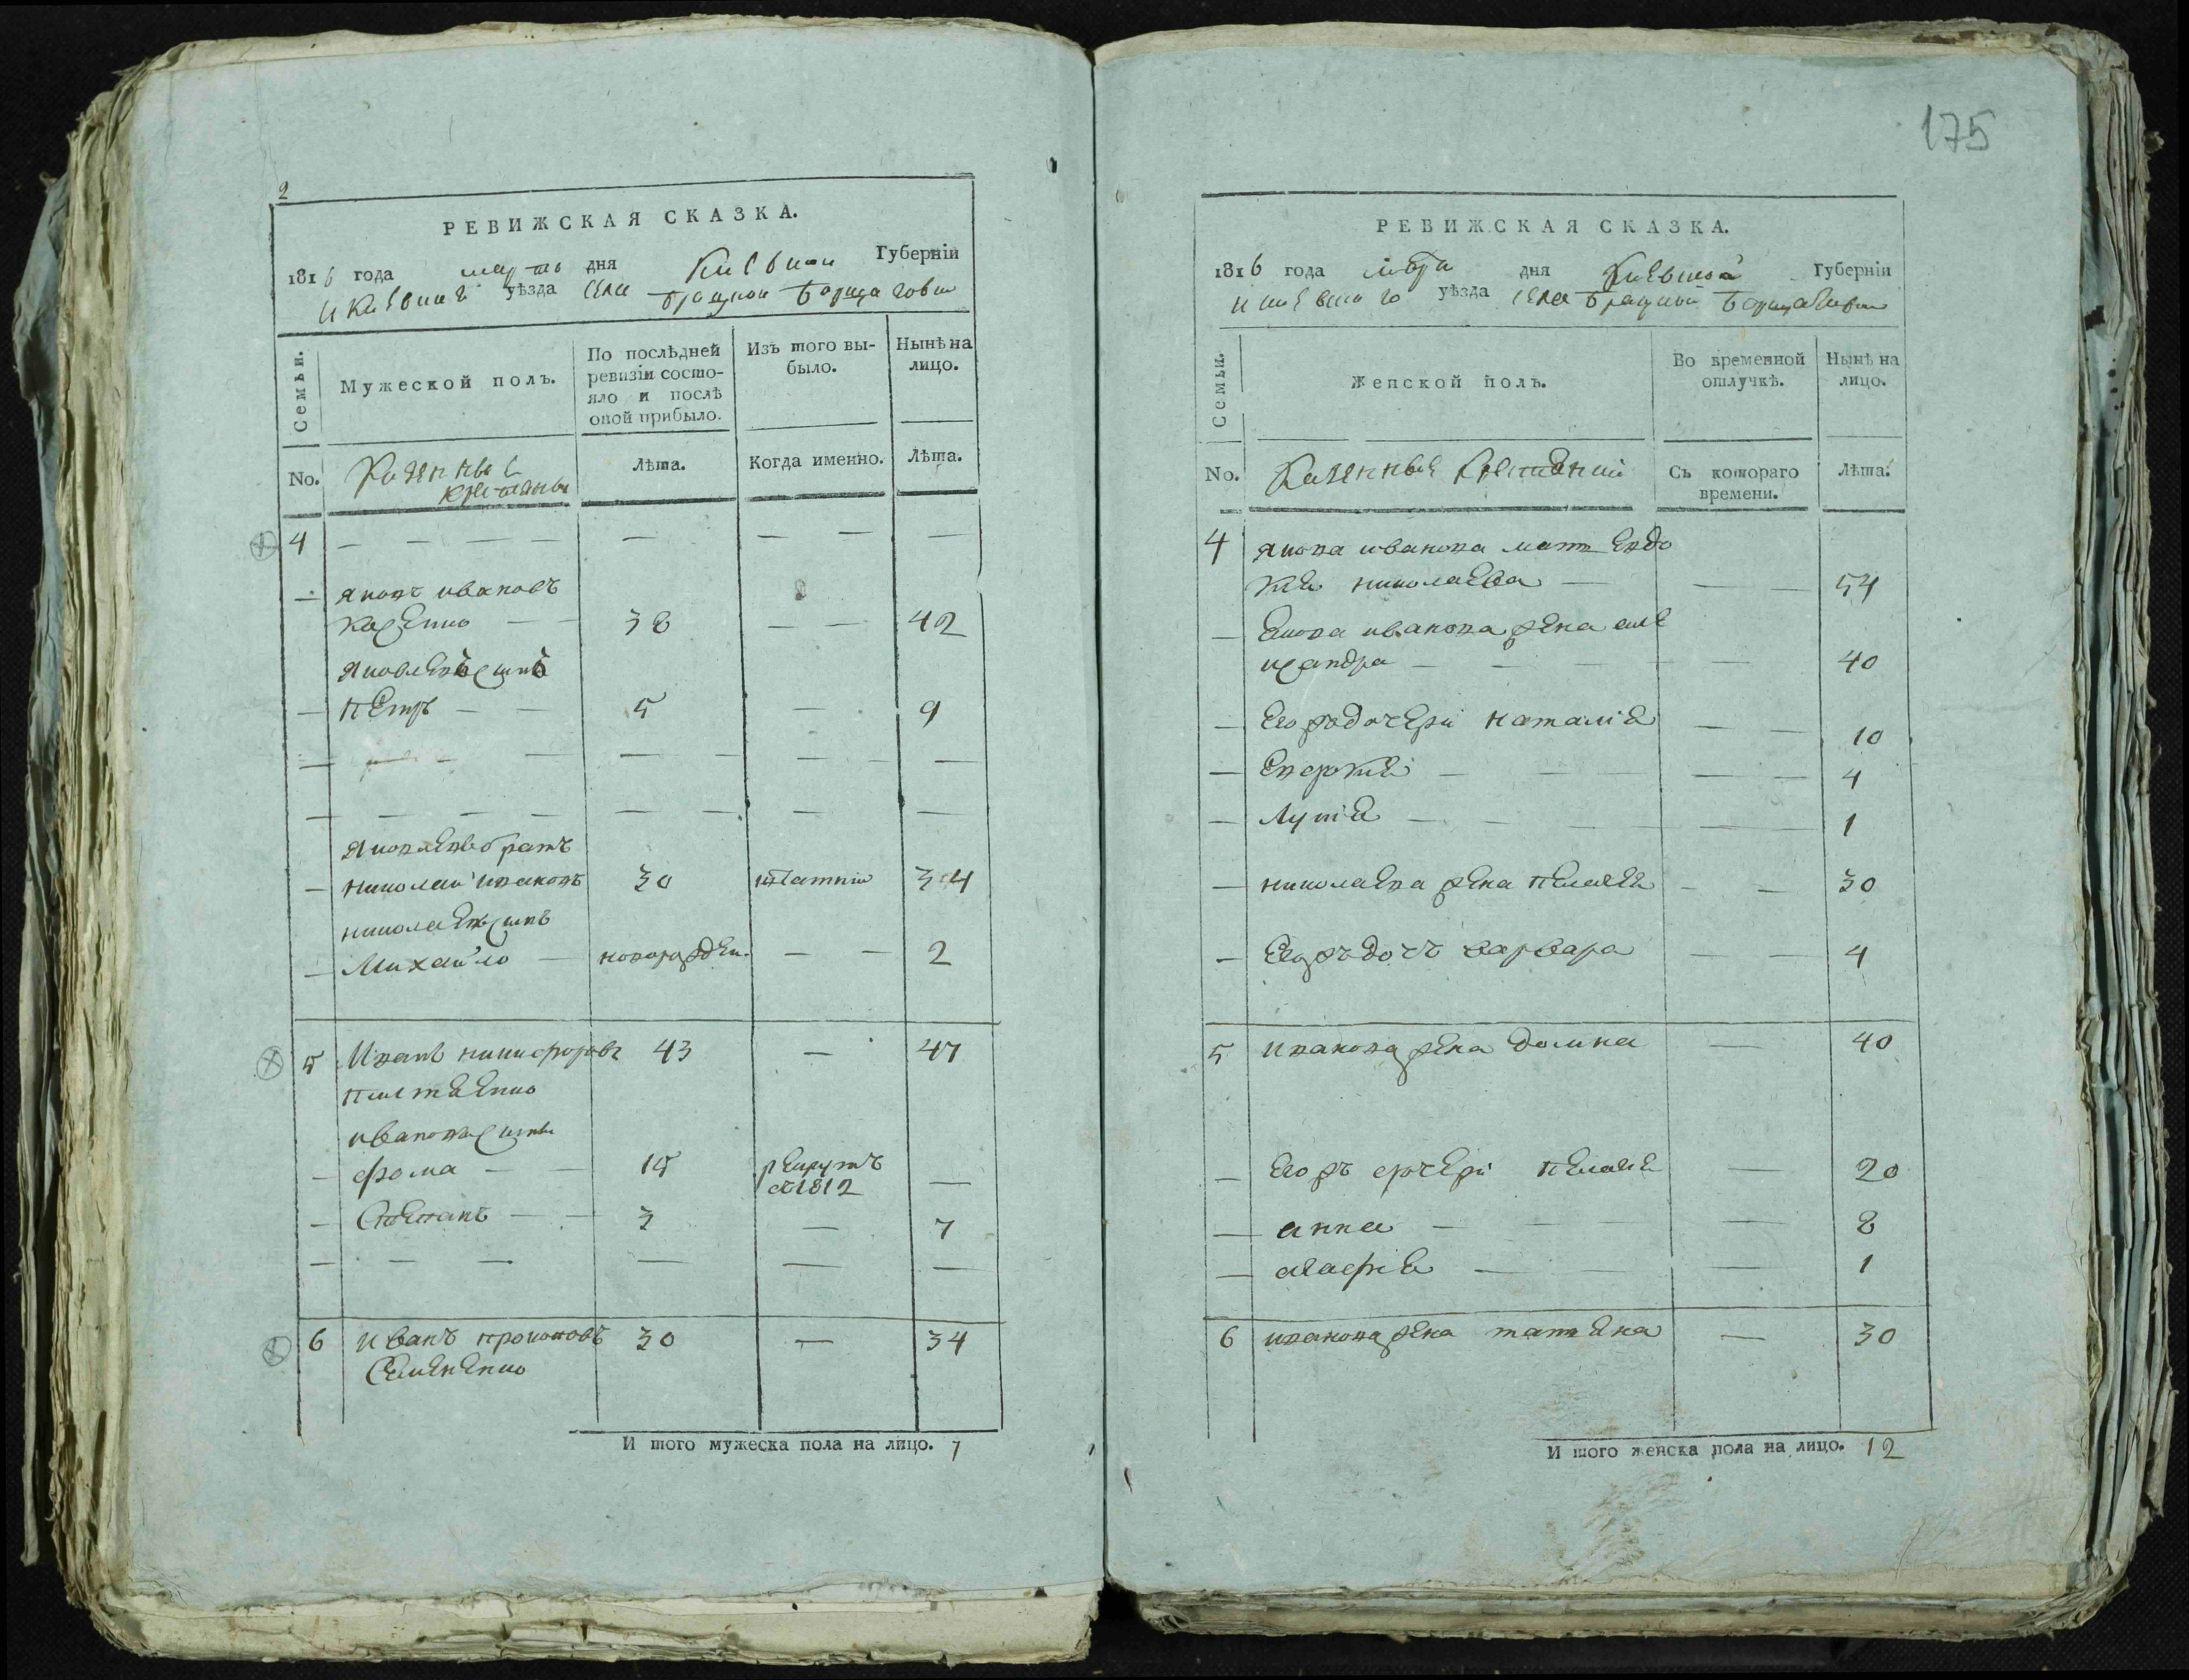 2
РЕВИЖСКАЯ СКАЗКА.
1816 года мартъ дня Киевской Губерніи
и Киевского уѣзда села Братской Борщаговки
Семьи.
Мужеской полъ.
По послѣдней ревизіи состо-
яло и послѣ
оной прибыло.
Изъ того вы-
было.
Нынѣ на
лицо.
No.
Казенные
крестьяны
Лѣта.
Когда именно.
Лѣта.
4 — — — — — — — —
— яковъ ивановъ
косенко — — 38 — — 42
яковлевъ синъ
— Петръ — — 5 — 9
— — — — — — — —
— — — — — — — —
яковлевъ братъ
— николай ивановъ 30 34
николаевъ синъ
— Михайло — новорожден. — — 2
5 Иванъ никифоровъ 43 — 47
ивановы сины
— фома — — 15 рекрутъ
въ 1812 —
— Степанъ — — 3 — 7
— — — — — —
6 иванъ прокоповъ 30 — 34
Семененко
И того мужеска пола на лицо. 7
175
РЕВИЖСКАЯ СКАЗКА.
1816 года марта дня Киевской Губерніи
и киевского уѣзда села Братской Борщаговки
Семьи.
Женской полъ.
Во временной
отлучкѣ.
Нынѣ на
лицо.
No.
Казенные крестяний
Съ котораго
времени.
Лѣта.
4 якова иванова мать Евдо
кия николаева — — — 54
— Якова иванова жена але
ксандра — — — — 40
— Его ж дочери наталия — — 10
— Евфрокия — — — — — 4
— Лукия — — — — — 1
— николаева жена пелагея — — 30
— Его жъ дочъ варвара — — 4
5 иванова жена домна — 40
— Его жъ дочери пелагея — 20
— анна — — — — 8
— агафия — — — 1
6 иванова жена татяна — 30
И того женска пола на лицо. 12